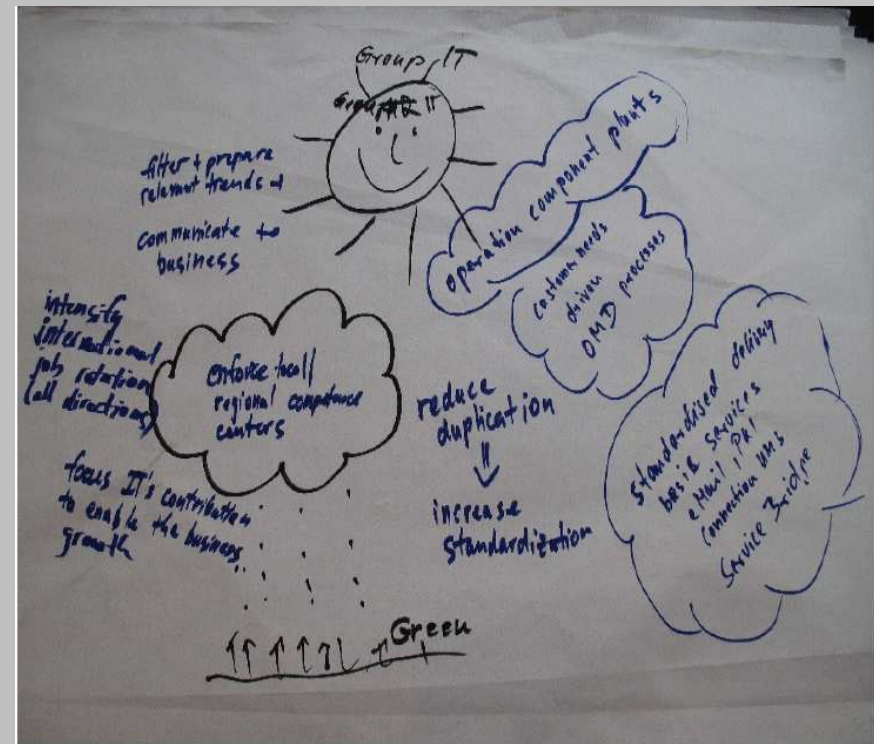 Group IT
Group IT
filter + prepare
relevant trends +
communicate to
business
operation component plants
customer needs
driven
OMD processes
intensify
international
job rotation
(all directions)
enforce local/
regional competence
centers
reduce
duplication
⇓
increase
standardization
standardised delivery
basic services
eMail, PKI
connection UMS
Service Bridge
focus IT's contribution
to enable the business
growth
Green